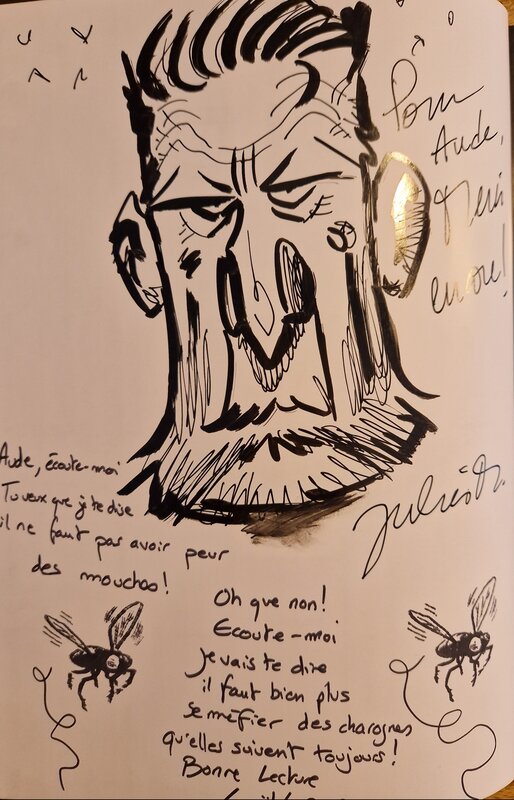 Pour
Aude,
Merci
encore!
Aude, écoute-moi
Tu veux que je te dise
il ne faut pas avoir peur
des mouches!
Oh que non!
Ecoute-moi
je vais te dire
il faut bien plus
se méfier des charognes
qu'elles suivent toujours!
Bonne Lecture